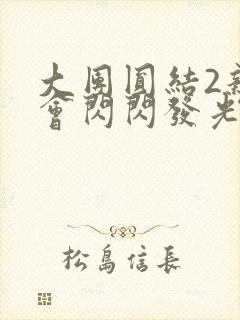 大團圓結2
會閃閃發光
松島信長